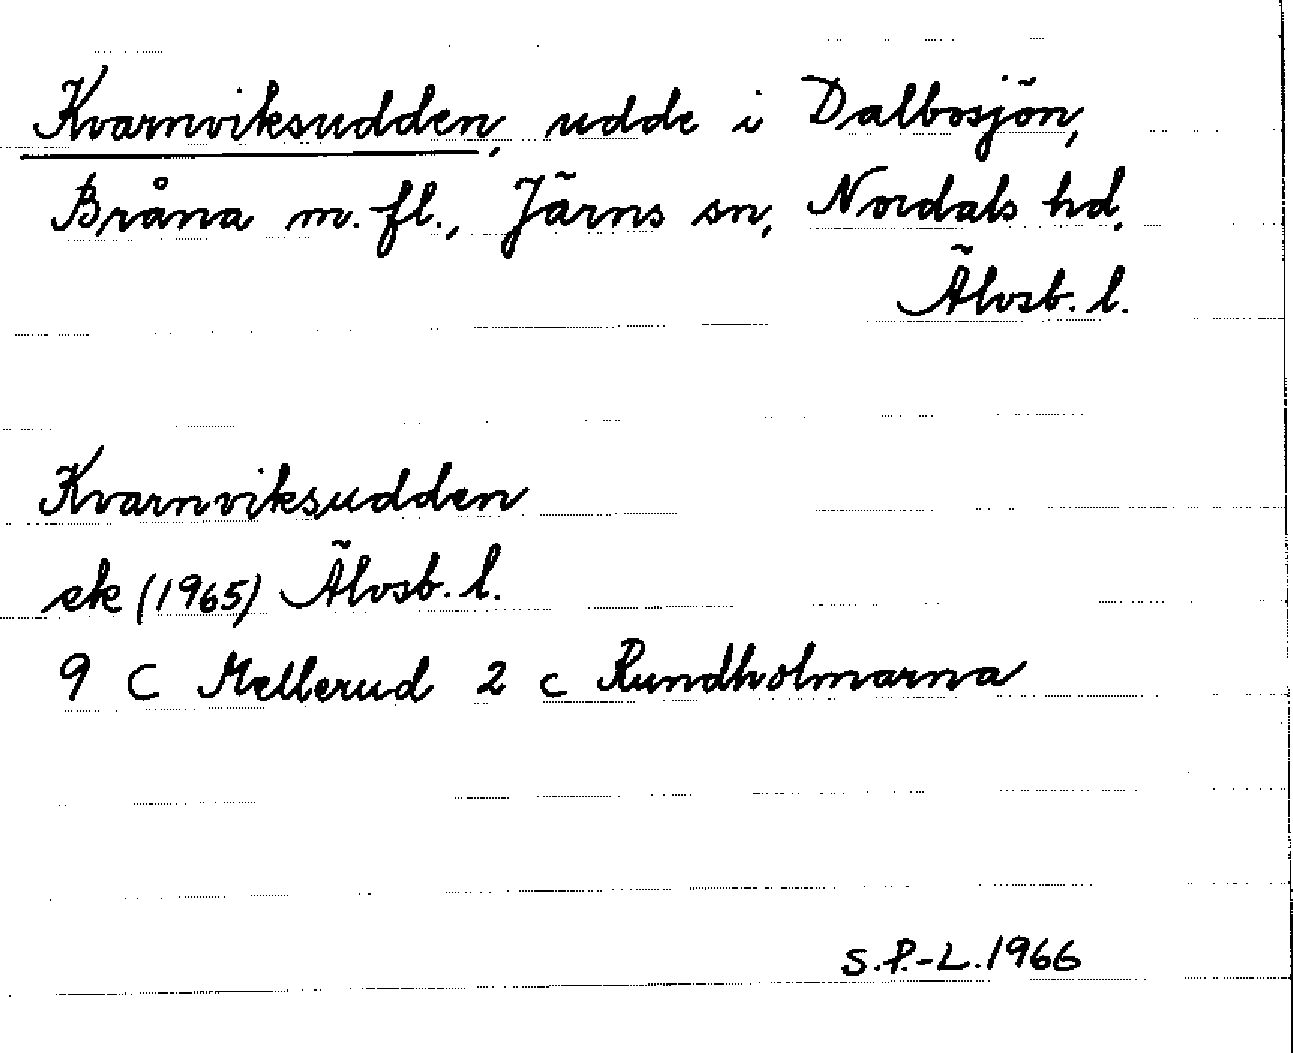 Kvarnviksudden, udde i Dalbosjön,
Bråna m.fl., Järns sn, Nordals hd,
Älvsb. l.
Kvarnviksudden
ek (1965) Älvsb. l.
9 C Mellerud 2 c Rundholmarna
S.P.-L. 1966